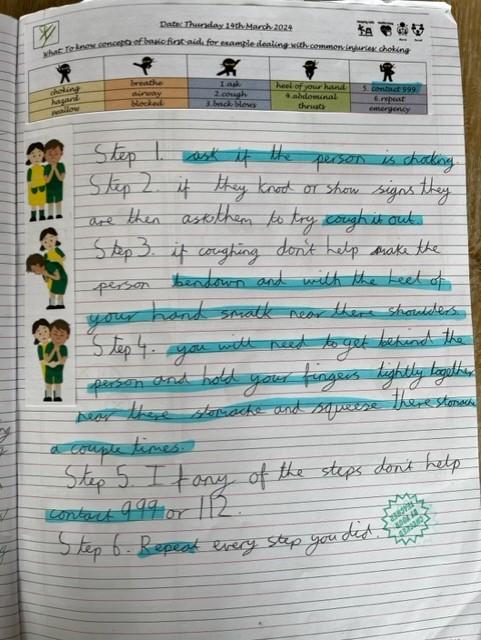 Date: Thursday 14th March 2024
What: To know concepts of basic first-aid, for example dealing with common injuries: choking
choking
hazard
swallow
breathe
airway
blocked
1.ask
2.cough
3.back blows
heel of your hand
4.abdominal
thrusts
5. contact 999
6.repeat
emergency
Step 1. ask if the person is choking
Step 2. if they knod or show signs they
are then ask them to try cough it out.
Step 3. if coughing don't help make the
person bendown and with the heel of
your hand smalk near there shoulders.
Step 4. you will need to get behind the
person and hold your fingers tightly together
near there stomache and squeese there stomache
a couple times.
Step 5. If any of the steps don't help
contact 999 or 112.
Step 6. Repeat every step you did.
CHECKED
BY YOUR
TEACHER